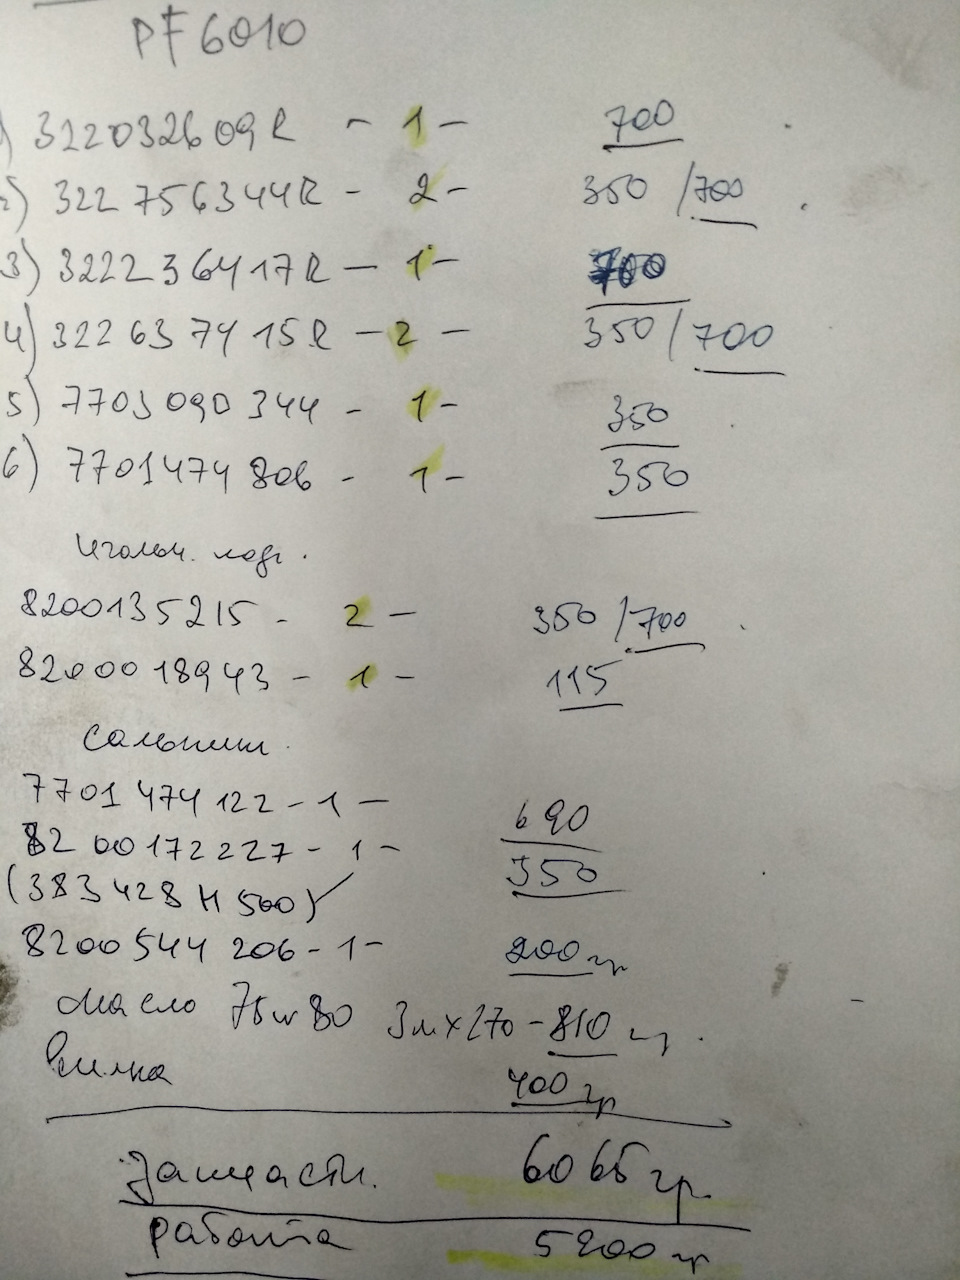 PF6010
1) 322032609R - 1 - 700
2) 322756344R - 2 - 350 / 700
3) 322236417R - 1 - 700
4) 322637415R - 2 - 350 / 700
5) 7703090344 - 1 - 350
6) 7701474806 - 1 - 350
Игольч. подг.
8200135215 - 2 - 350 / 700
8200018943 - 1 - 115
Сальники
7701474122 - 1 - 690
8200172227 - 1 - 350
(383428H500)
8200544206 - 1 - 200 гр
Масло 75w80 3л x 270 - 810 гр.
Вилка 400 гр
Запчасти. 6065 гр.
работа 5200 гр